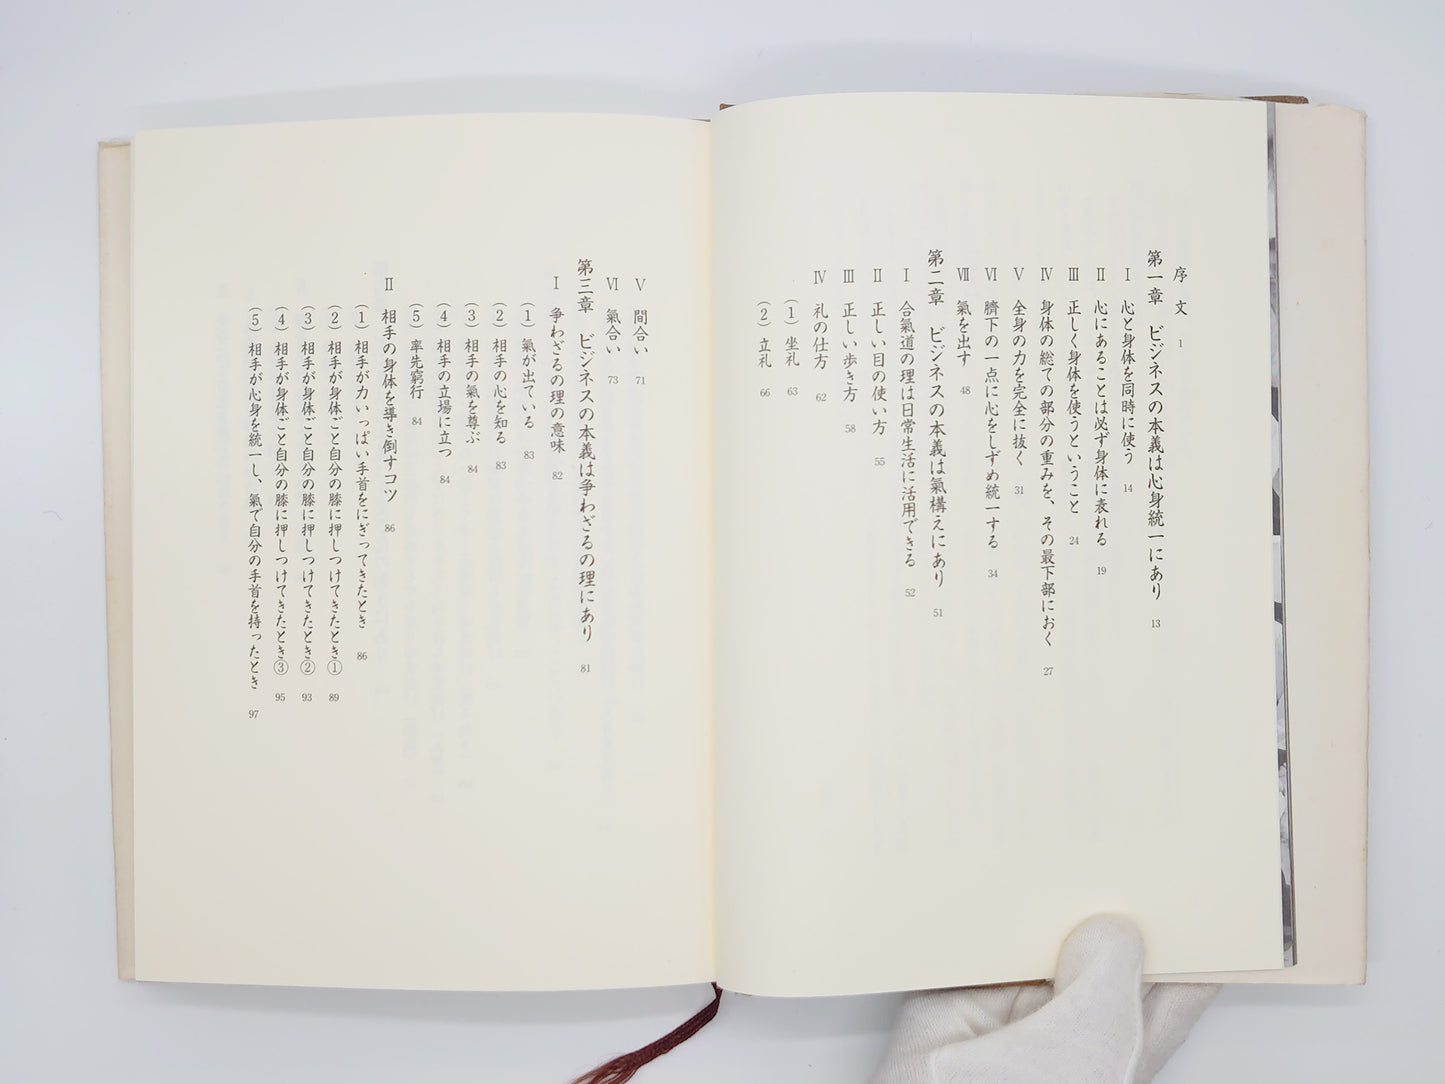 序文 1
第一章 ビジネスの本義は心身統一にあり 13
Ⅰ 心と身体を同時に使う 14
Ⅱ 心にあることは必ず身体に表れる 19
Ⅲ 正しく身体を使うということ 24
Ⅳ 身体の総ての部分の重みを、その最下部におく 27
Ⅴ 全身の力を完全に抜く 31
Ⅵ 臍下の一点に心をしずめ統一する 34
Ⅶ 氣を出す 48
第二章 ビジネスの本義は氣構えにあり 51
Ⅰ 合氣道の理は日常生活に活用できる 52
Ⅱ 正しい目の使い方 55
Ⅲ 正しい歩き方 58
Ⅳ 礼の仕方 62
(1) 坐礼 63
(2) 立礼 66
Ⅴ 間合い 71
Ⅵ 氣合い 73
第三章 ビジネスの本義は争わざるの理にあり 81
Ⅰ 争わざるの理の意味 82
(1) 氣が出ている 83
(2) 相手の心を知る 83
(3) 相手の氣を尊ぶ 84
(4) 相手の立場に立つ 84
(5) 率先窮行 84
Ⅱ 相手の身体を導き倒すコツ 86
(1) 相手が力いっぱい手首をにぎってきたとき 86
(2) 相手が身体ごと自分の膝に押しつけてきたとき① 89
(3) 相手が身体ごと自分の膝に押しつけてきたとき② 93
(4) 相手が身体ごと自分の膝に押しつけてきたとき③ 95
(5) 相手が心身を統一し、氣で自分の手首を持ったとき 97